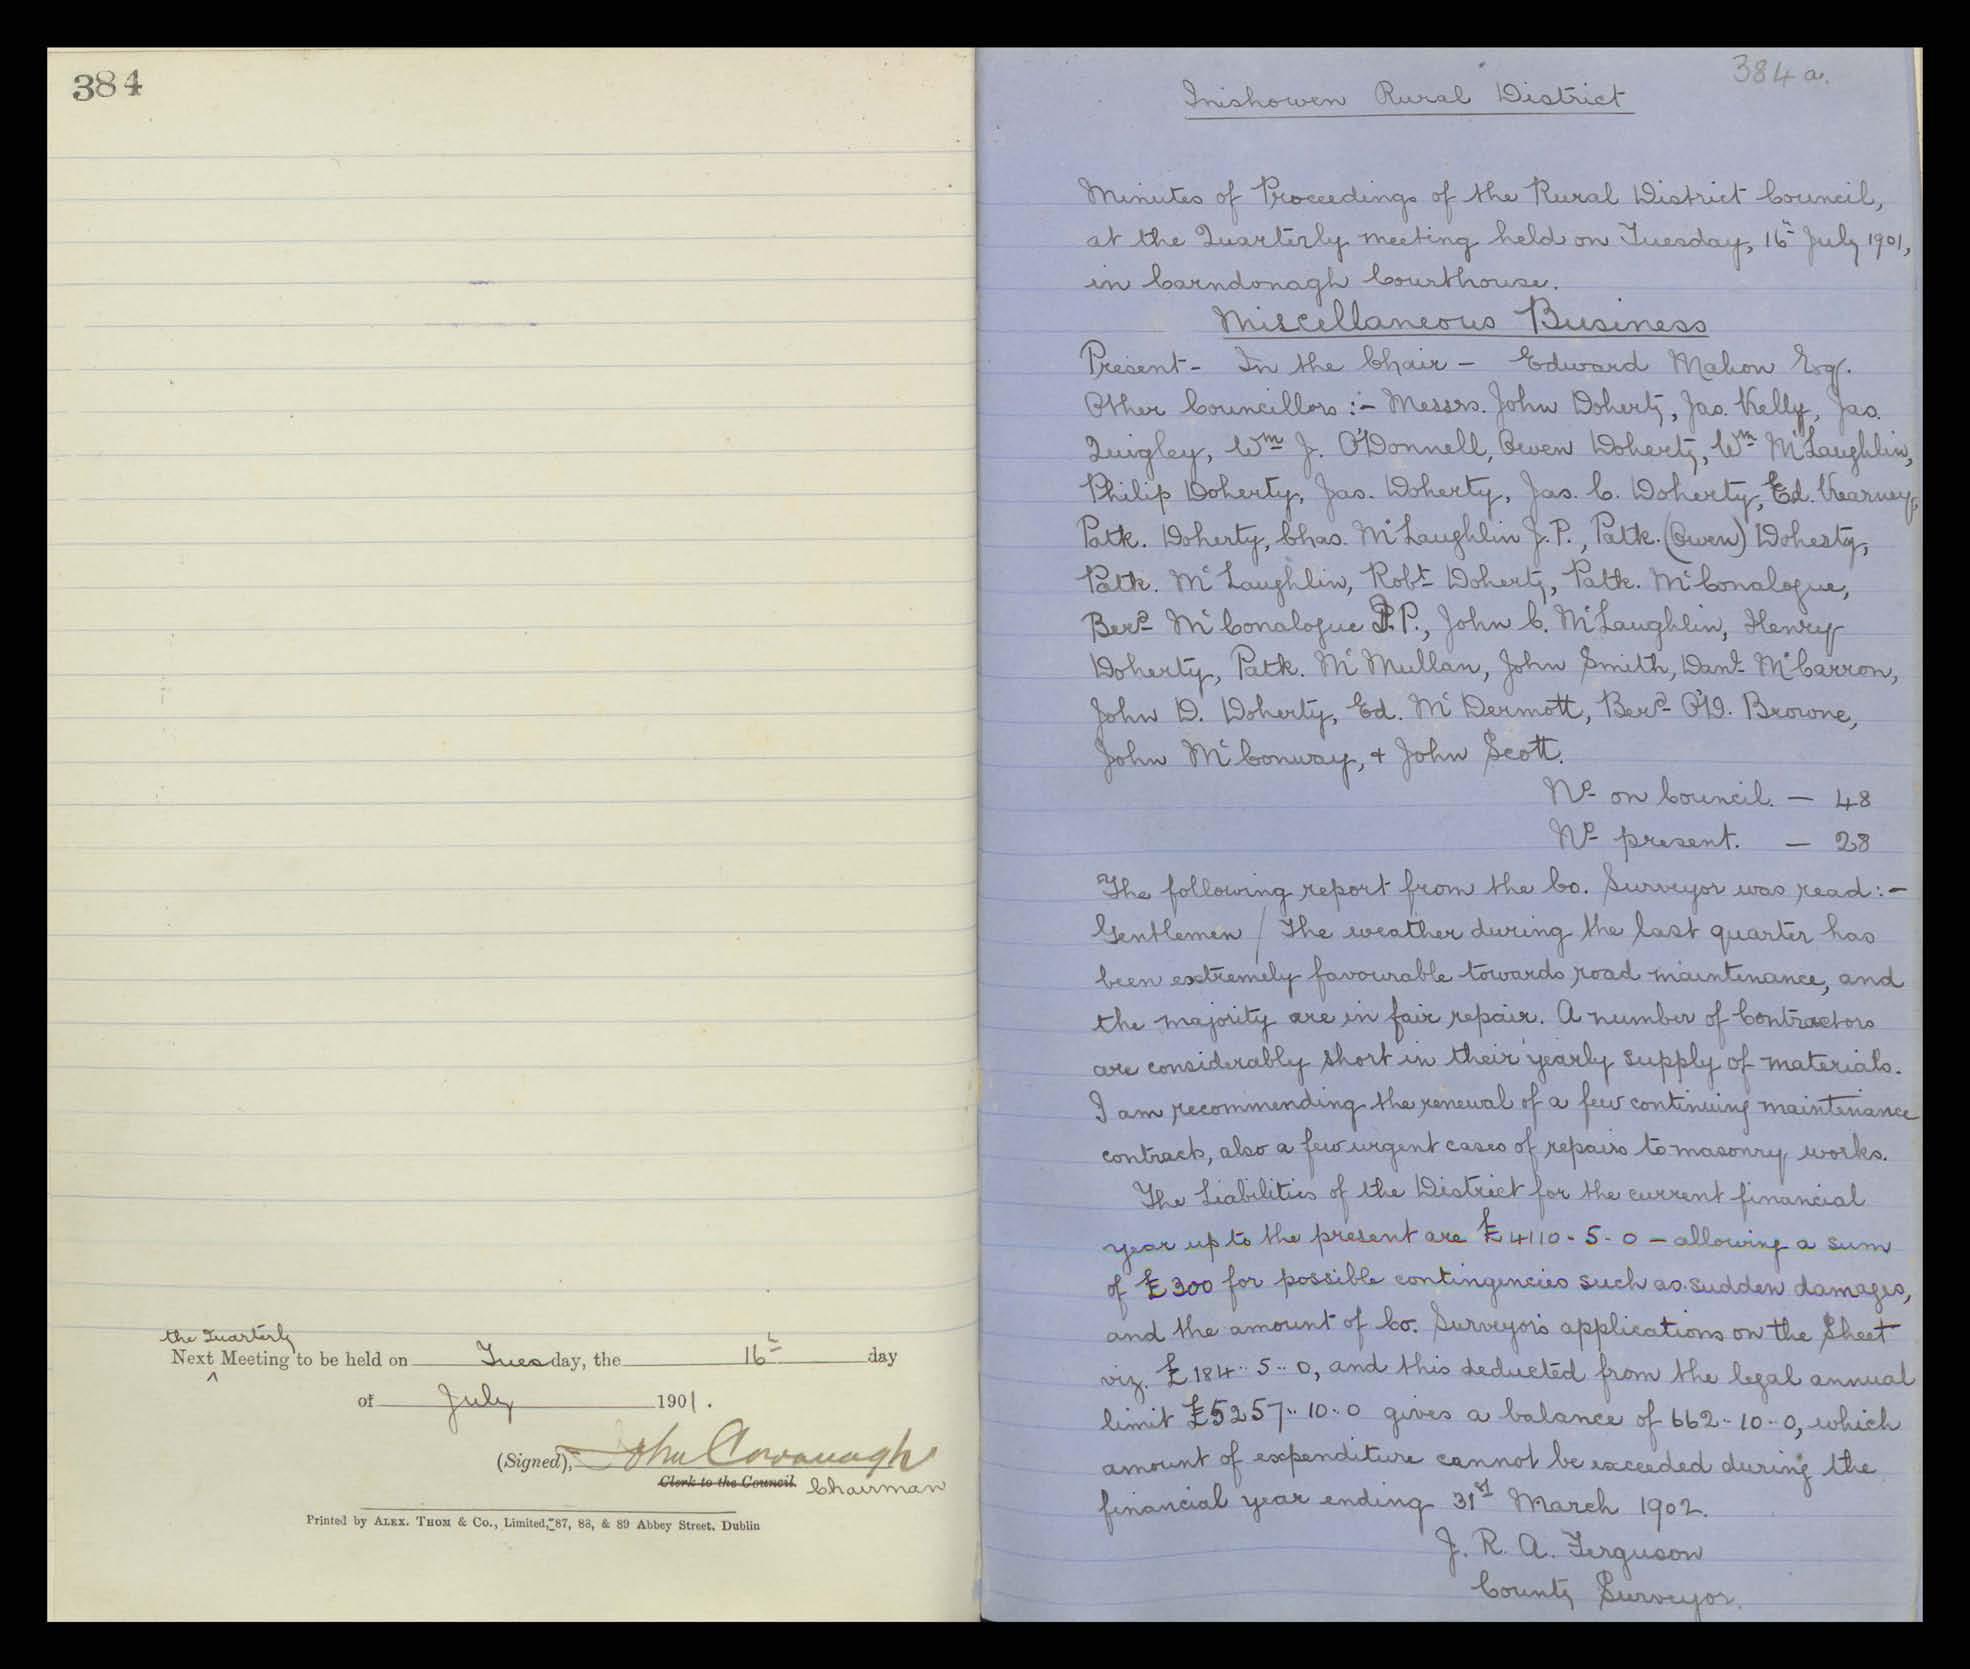 384
the Quarterly
Next Meeting to be held on Tuesday, the 16th day
of July 1901.
(Signed), John Cavanagh
Clerk to the Council. Chairman
Printed by ALEX. THOM & Co., Limited, 87, 88, & 89 Abbey Street, Dublin
384 a.
Inishowen Rural District
Minutes of Proceedings of the Rural District Council,
at the Quarterly meeting held on Tuesday, 16th July 1901,
in Carndonagh Courthouse.
Miscellaneous Business
Present - In the Chair - Edward Mahon Esq.
Other Councillors :- Messrs. John Doherty, Jas. Kelly, Jas.
Quigley, Wm J. O'Donnell, Owen Doherty, Wm McLaughlin,
Philip Doherty, Jas. Doherty, Jas. C. Doherty, Ed. Kearney,
Patk. Doherty, Chas. McLaughlin J.P., Patk. (Owen) Doherty,
Patk. McLaughlin, Robt Doherty, Patk. McConalogue,
Berd McConalogue J.P., John C. McLaughlin, Henry
Doherty, Patk. McMullan, John Smith, Danl McCarron,
John D. Doherty, Ed. McDermott, Berd O'D. Browne,
John McConway, + John Scott.
No on Council. — 48
No present. — 28
The following report from the Co. Surveyor was read :-
Gentlemen / The weather during the last quarter has
been extremely favourable towards road maintenance, and
the majority are in fair repair. A number of Contractors
are considerably short in their yearly supply of materials.
I am recommending the renewal of a few continuing maintenance
contracts, also a few urgent cases of repairs to masonry works.
The Liabilities of the District for the current financial
year up to the present are £4110 - 5 - 0 - allowing a sum
of £300 for possible contingencies such as sudden damages,
and the amount of Co. Surveyor's applications on the Sheet
viz. £184 .. 5 .. 0, and this deducted from the legal annual
limit £5257 .. 10 .. 0 gives a balance of 662 .. 10 .. 0, which
amount of expenditure cannot be exceeded during the
financial year ending 31st March 1902.
J. R. A. Ferguson
County Surveyor.